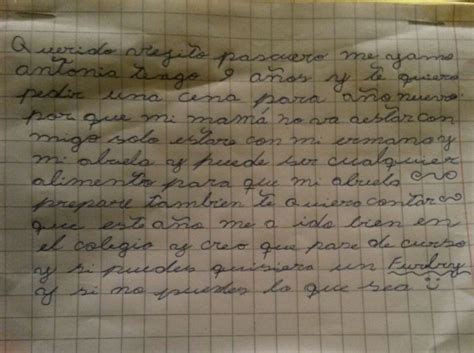 Querido viegito pascuero me yamo
antonia tengo 9 años y te quiero
pedir una cena para año nuevo
por que mi mamá no va a estar con
migo solo estare con mi ermano y
mi abuela y puede ser cualquier
alimento para que mi abuela
prepare tambien te quiero contar
que este año me a ido bien en
el colegio y creo que pase de curso
y si puedes quisiera un Furbry
y si no puedes lo que sea